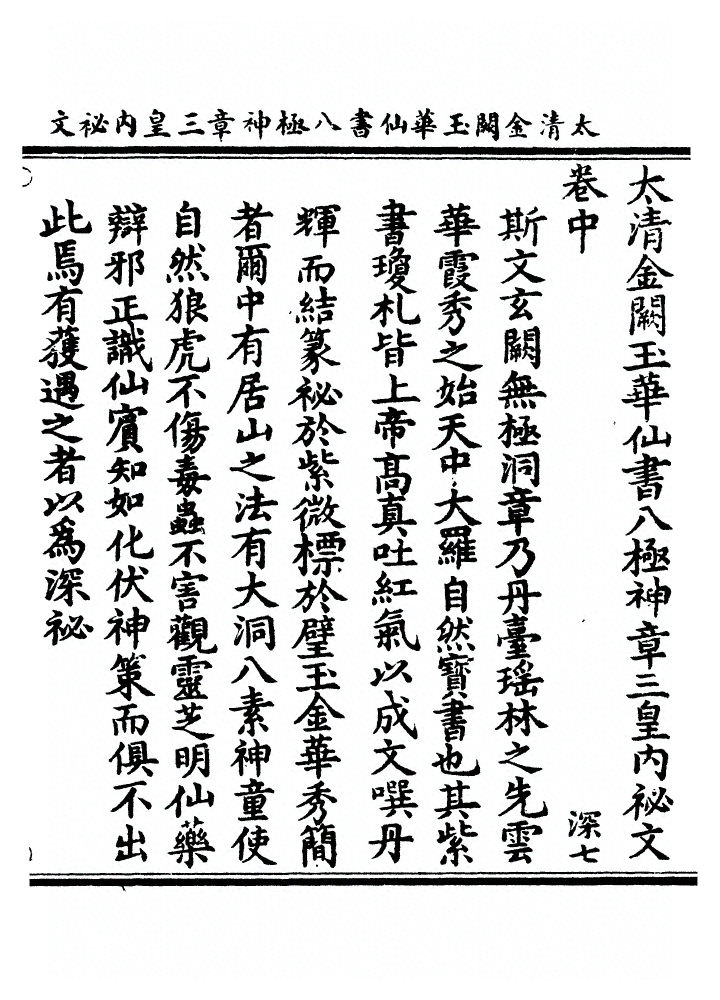 太清金闕玉華仙書八極神章三皇內祕文
太清金闕玉華仙書八極神章三皇內祕文
卷中
深七
斯文玄闕無極洞章乃丹臺瑶林之先雲
華霞秀之始天中大羅自然寶書也其紫
書瓊札皆上帝髙真吐紅氣以成文噀丹
輝而結篆祕於紫微標於璧玉金華秀簡
者爾中有居山之法有大洞八素神童使
自然狼虎不傷毒蟲不害觀靈芝明仙藥
辯邪正識仙賔知如化伏神策而俱不出
此焉有獲遇之者以為深祕